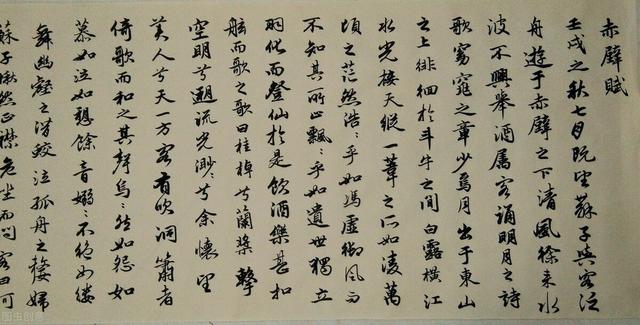 赤壁賦
壬戌之秋七月既望蘇子與客泛
舟遊于赤壁之下清風徐来水
波不興舉酒屬客誦明月之詩
歌窈窕之章少焉月出于東山
之上徘徊於斗牛之間白露橫江
水光接天縱一葦之所如凌萬
頃之茫然浩〻乎如馮虛御風而
不知其所止飄〻乎如遺世獨立
羽化而登仙於是飲酒樂甚扣
舷而歌之歌曰桂棹兮蘭槳擊
空明兮遡流光渺〻兮余懷望
美人兮天一方客有吹洞簫者
倚歌而和之其聲嗚〻然如怨如
慕如泣如愬餘音嫋〻不絕如縷
舞幽壑之潛蛟泣孤舟之嫠婦
蘇子愀然正襟危坐而問客曰何
图虫创意